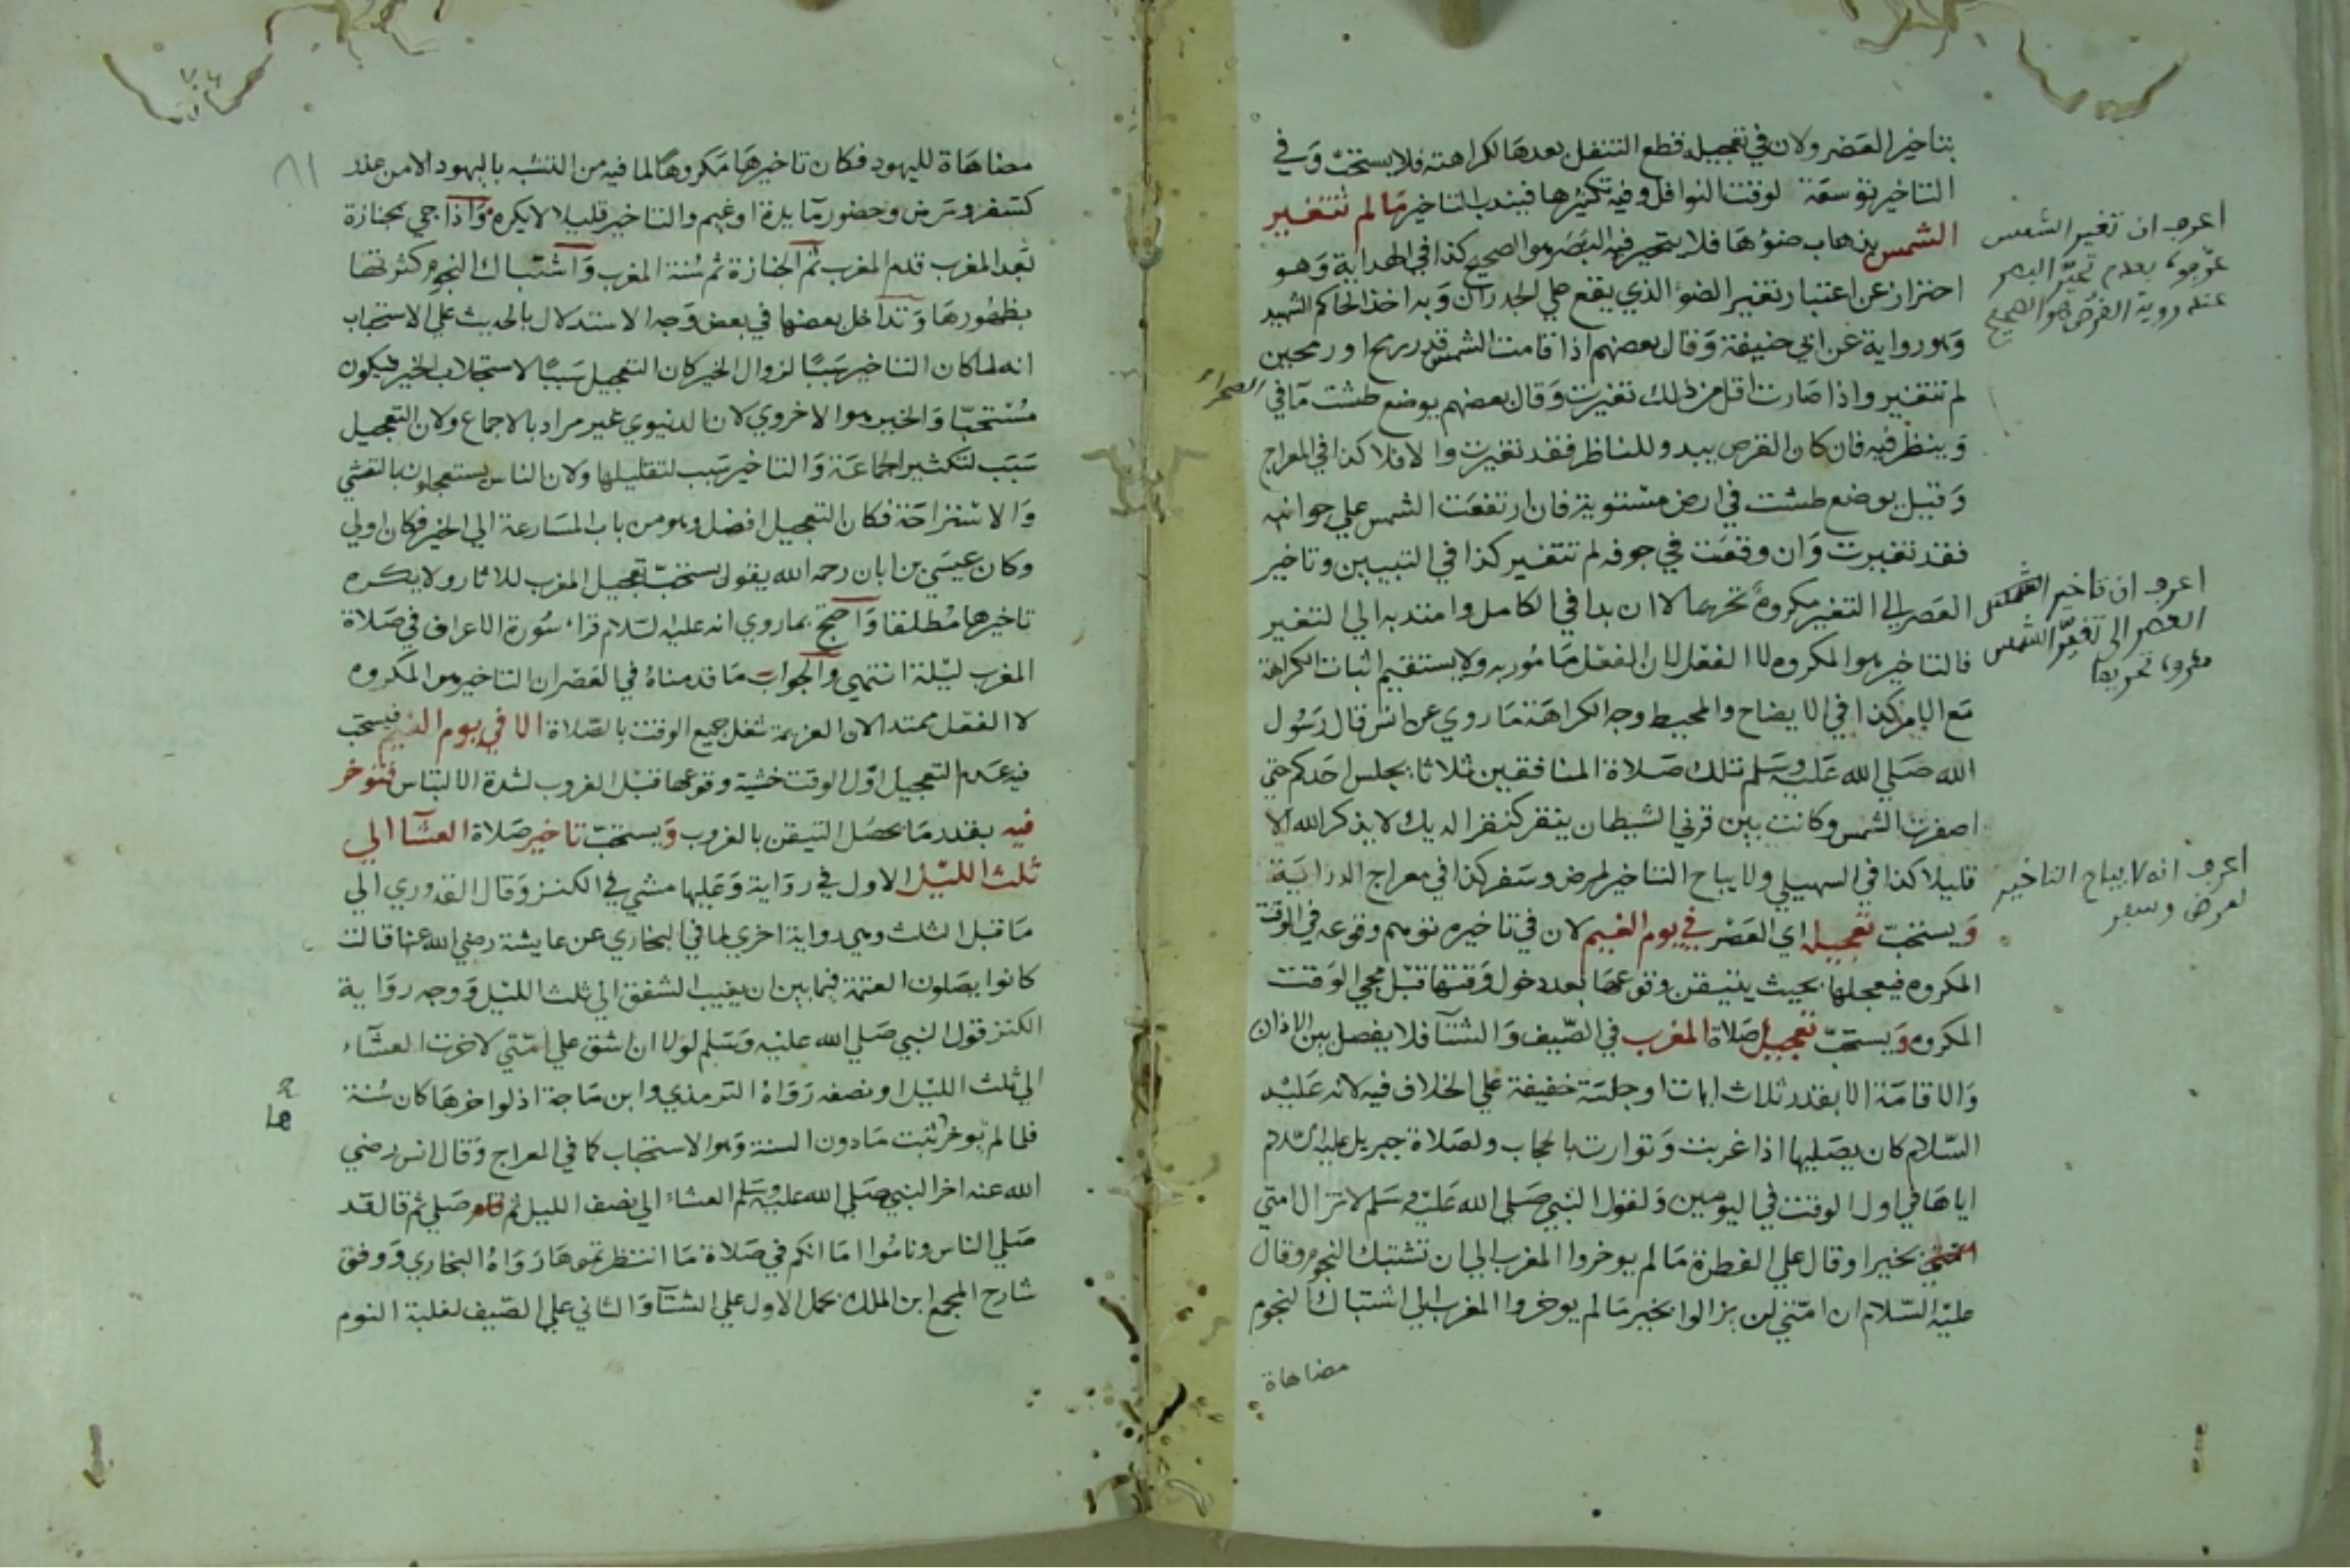 بتاخير العصر ولان في تعجيله قطع التنفل بعدها لكراهته فلا يستحب وفي
التاخير توسعة لوقت النوافل وفيه تكثيرها فيندب التاخير مالم تتغير
الشمس بذهاب ضوؤها فلا يتحير فيه البصر هو الصحيح كذا في الهداية وهو
احتراز عن اعتبار تغير الضوء الذي يقع علي الجدران وبه اخذ الحاكم الشهيد
وهو رواية عن ابي حنيفة وقال بعضهم اذا قامت الشمس قدر رمح او رمحين
لم تتغير واذا صارت اقل من ذلك تغيرت وقال بعضهم يوضع طشت ما في الصحراء
وينظر فيه فان كان القرص يبدو للناظر فقد تغيرت والا فلا كذا في المعراج
وقيل يوضع طشت في ارض مستوية فان ارتفعت الشمس علي جوانبه
فقد تغيرت وان وقعت في جوفه لم تتغير كذا في التبيين وتاخير
العصر الي التغير مكروه تحريما الا ان بدا في الكامل وامتد به الي التغير
فالتاخير هو المكروه لا الفعل لان الفعل مامور به ولا يستقيم اثبات الكراهة
مع الامر كذا في الايضاح والمحيط وجه الكراهة ما روي عن انس قال رسول
الله صلي الله عليه وسلم تلك صلاة المنافقين ثلاثا يجلس احدكم حتي
اصفرت الشمس وكانت بين قرني الشيطان ينقر كنقر الديك لا يذكر الله الا
قليلا كذا في السهيلي ولا يباح التاخير لمرض وسفر كذا في معراج الدراية
ويستحب تعجيله اي العصر في يوم الغيم لان في تاخيره توهم وقوعه في الوقت
المكروه فيعجلها بحيث يتيقن وقوعها بعد دخول وقتها قبل مجي الوقت
المكروه ويستحب تعجيل صلاة المغرب في الصيف والشتآ فلا يفصل بين الاذان
والاقامة الا بقدر ثلاث ايات او جلسة خفيفة علي الخلاف فيه لانه عليه
السلام كان يصليها اذا غربت وتوارت بالحجاب ولصلاة جبريل عليه السلام
اياها في اول الوقت في اليومين ولقول النبي صلي الله عليه وسلم لا تزال امتي
بخير او قال علي الفطرة ما لم يوخروا المغرب الي ان تشتبك النجوم وقال
عليه السلام ان امتي لن يزالوا بخير ما لم يوخروا المغرب الي اشتباك النجوم
مضاهاة
اعرف ان تغير الشمس
بعدم تحير البصر
عند روية القرص هو الصحيح
اعرف ان تاخير
العصر الى تغير الشمس
مكروه تحريما
اعرف انه لا يباح التاخير
لمرض وسفر
٨١
مضاهاة لليهود فكان تاخيرها مكروها لما فيه من التشبه باليهود الا من عذر
كسفر ومرض وحضور مآيدة او غيم والتاخير قليلا لا يكره واذا جي بجنازة
بعد المغرب قدم المغرب ثم الجنازة ثم سنة المغرب واشتباك النجوم كثرتها
بظهورها وتداخل بعضها في بعض وجه الاستدلال بالحديث علي الاستحباب
انه لما كان التاخير سببا لزوال الخير كان التعجيل سببا لاستجلاب الخير فيكون
مستحبا والخير هو الاخروي لان الدنيوي غير مراد بالاجماع ولان التعجيل
سبب لتكثير الجماعة والتاخير سبب لتقليلها ولان الناس يستعجلون بالتعشي
والاستراحة فكان التعجيل افضل وهو من باب المسارعة الي الخير فكان اولي
وكان عيسي بن ابان رحمه الله يقول يستحب تعجيل المغرب للاثار ولا يكره
تاخيرها مطلقا واحتج بما روي انه عليه السلام قرا سورة الاعراف في صلاة
المغرب ليلة انتهي والجواب ما قدمناه في العصر ان التاخير هو المكروه
لا الفعل ممتد الان العزيمة شغل جميع الوقت بالصلاة الا في يوم الغيم فيستحب
فيه عدم التعجيل اول الوقت خشية وقوعها قبل الغروب لشدة الالتباس فتوخر
فيه بقدر ما يحصل التيقن بالغروب ويستحب تاخير صلاة العشآ الي
ثلث الليل الاول في رواية وعليها مشي في الكنز وقال القدوري الي
ما قبل الثلث وهي رواية اخري لما في البخاري عن عايشة رضي الله عنها قالت
كانوا يصلون العتمة فيما بين ان يغيب الشفق الي ثلث الليل ووجه رواية
الكنز قول النبي صلي الله عليه وسلم لولا ان اشق علي امتي لاخرت العشآء
الي ثلث الليل او نصفه رواه الترمذي وابن ماجة اذ لو اخرها كان سنة
فلما لم يوخر ثبت ما دون السنة وهو الاستحباب كما في المعراج وقال انس رضي
الله عنه اخر النبي صلي الله عليه وسلم العشاء الي نصف الليل ثم صلي ثم قال قد
صلي الناس وناموا اما انكم في صلاة ما انتظرتموها رواه البخاري ووفق
شارح المجمع ابن الملك بحمل الاول علي الشتآ والثاني علي الصيف لغلبة النوم
ها